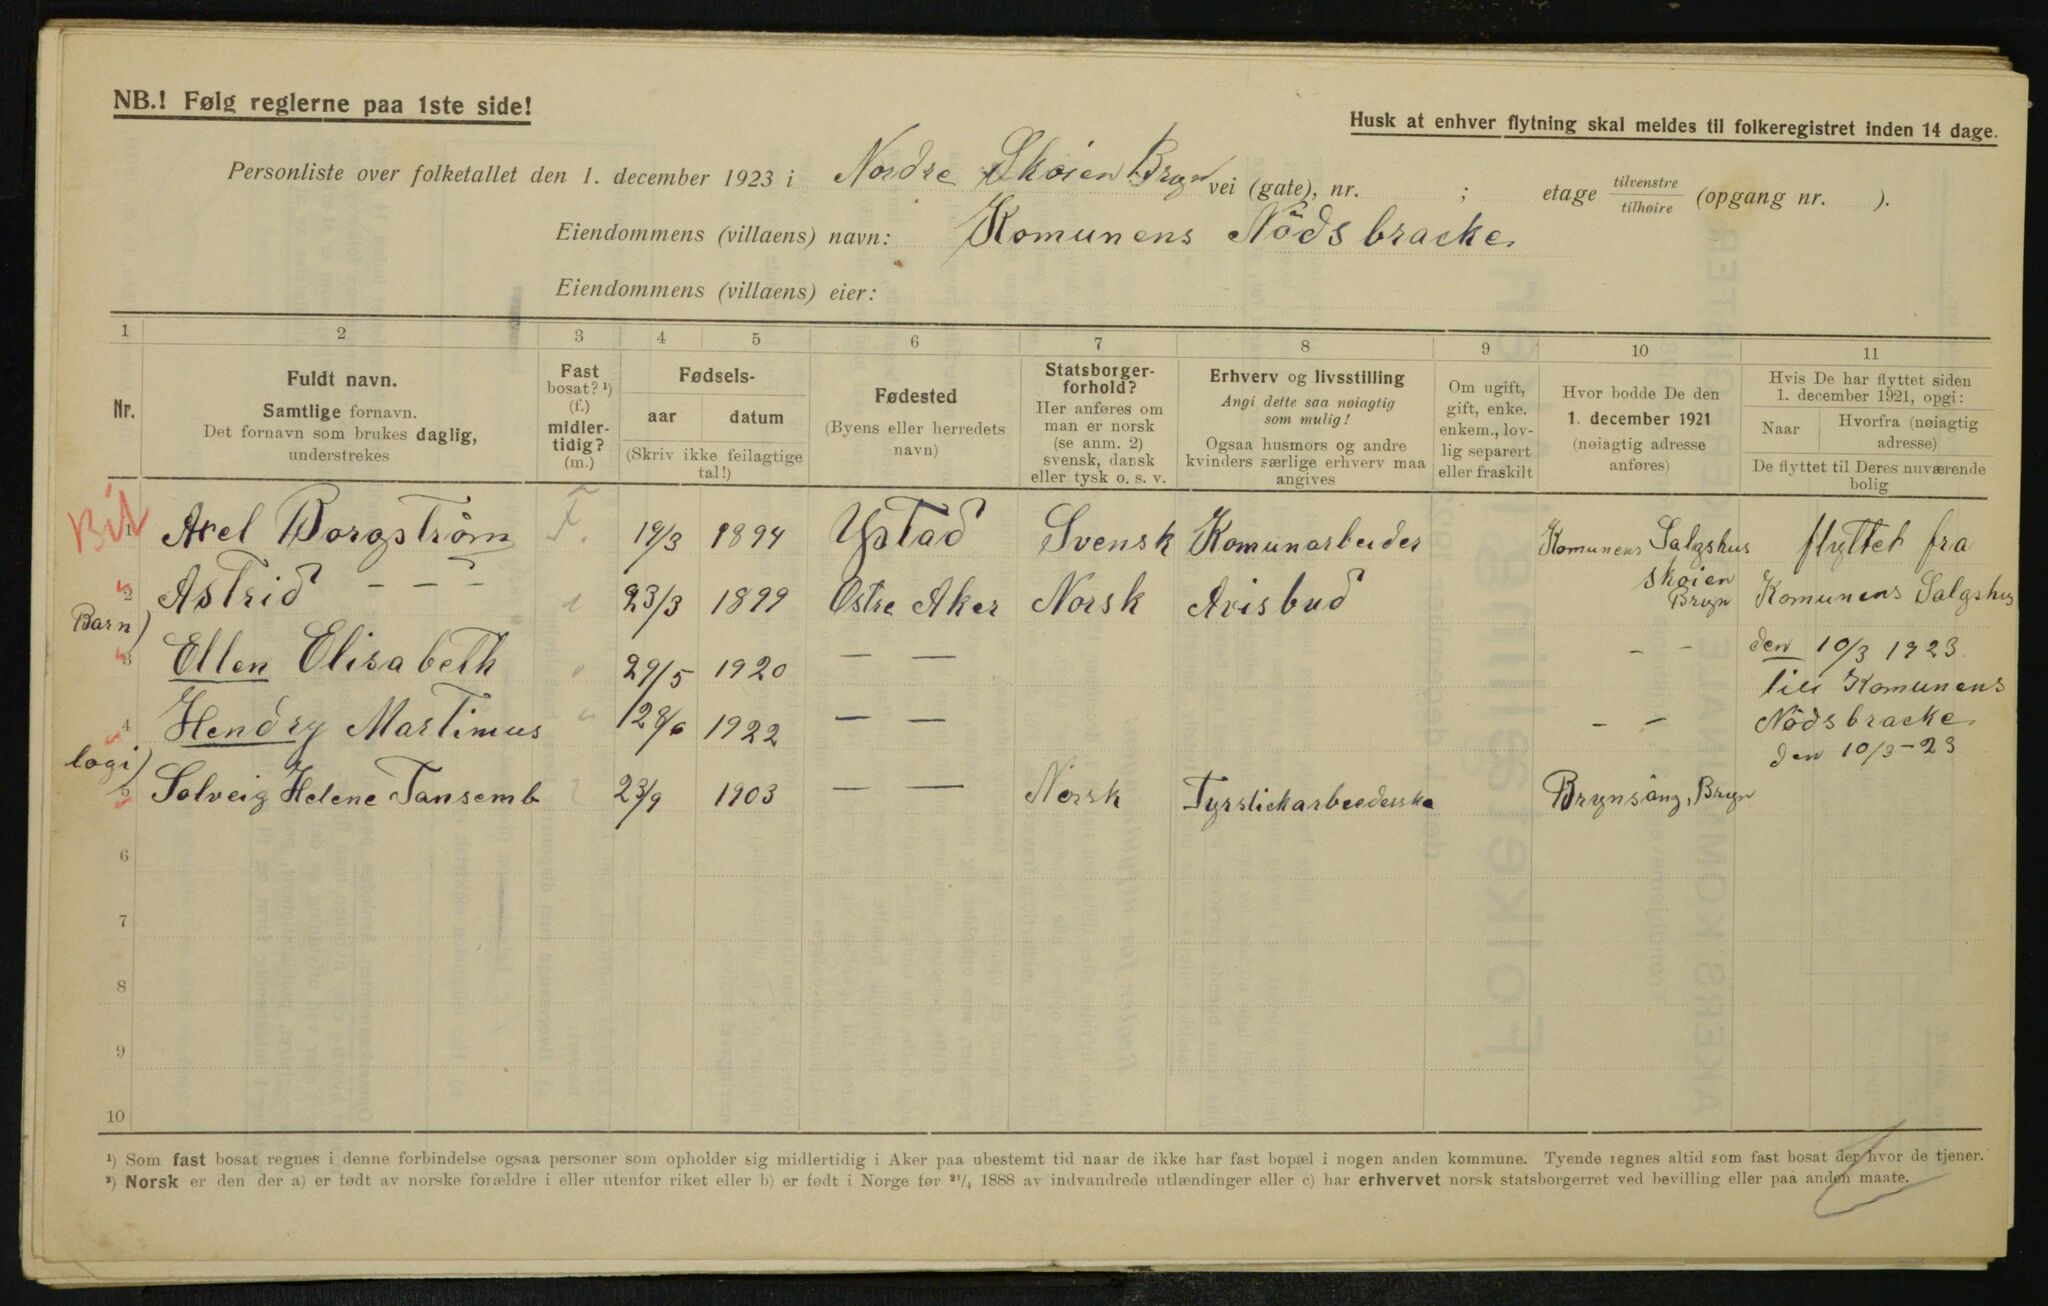 NB.! Følg reglerne paa 1ste side!
Husk at enhver flytning skal meldes til folkeregistret inden 14 dage.
Personliste over folketallet den 1. december 1923 i Nordre Skøien Bryn vei (gate), nr. ; etage tilvenstre tilhøire (opgang nr. ).
Eiendommens (villaens) navn: Komunens Nödsbracke
Eiendommens (villaens) eier:
1 2 3 4 5 6 7 8 9 10 11
Nr.
Fuldt navn.
Samtlige fornavn.
Det fornavn som brukes daglig,
understrekes
Fast
bosat? ¹)
(f.)
midler-
tidig?
(m.)
Fødsels-
aar datum
(Skriv ikke feilagtige
tal!)
Fødested
(Byens eller herredets
navn)
Statsborger-
forhold?
Her anføres om
man er norsk
(se anm. 2)
svensk, dansk
eller tysk o. s. v.
Erhverv og livsstilling
Angi dette saa nøiagtig
som mulig!
Ogsaa husmors og andre
kvinders særlige erhverv maa
angives
Om ugift,
gift, enke.
enkem., lov-
lig separert
eller fraskilt
Hvor bodde De den
1. december 1921
(nøiagtig adresse
anføres)
Hvis De har flyttet siden
1. december 1921, opgi:
Naar
Hvorfra (nøiagtig
adresse)
De flyttet til Deres nuværende
bolig
1 Axel Borgström F. 19/3 1894 Ystad Svensk Komunarbeider Komunens Salgshus flyttet fra
Skøien
2 Astrid - - - 23/3 1899 Østre Aker Norsk Avisbud Bryn Komunens Salgshus
Barn)
3 Ellen Elisabeth 29/5 1920 — — - - den 10/3 1923.
till Komunens
4 Hendry Martinus 1922 — — - - Nödsbracke
logi) den 10/3-23
5 Solveig Helene 23/9 1903 — — Norsk Brynsäng, Bryn
6
7
8
9
10
¹) Som fast bosat regnes i denne forbindelse ogsaa personer som opholder sig midlertidig i Aker paa ubestemt tid naar de ikke har fast bopæl i nogen anden kommune. Tyende regnes altid som fast bosat der hvor de tjener.
²) Norsk er den der a) er født av norske forældre i eller utenfor riket eller b) er født i Norge før ²¹/₄ 1888 av indvandrede utlændinger eller c) har erhvervet norsk statsborgerret ved bevilling eller paa anden maate.